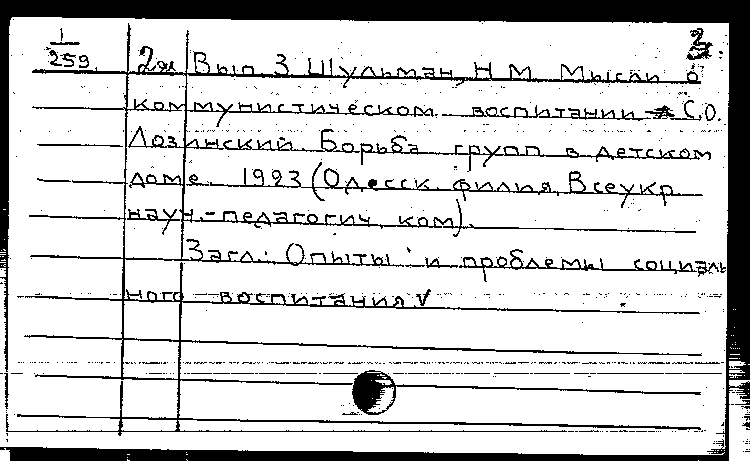 1
259. 2я Вып. 3 Шульман, Н.М. Мысли о
коммунистическом воспитании С.О.
Лозинский. Борьба групп в детском
доме. 1923 (Одесск. филия Всеукр.
науч.-педагогич. ком).
Загл.: Опыты и проблемы социаль
ного воспитания. V